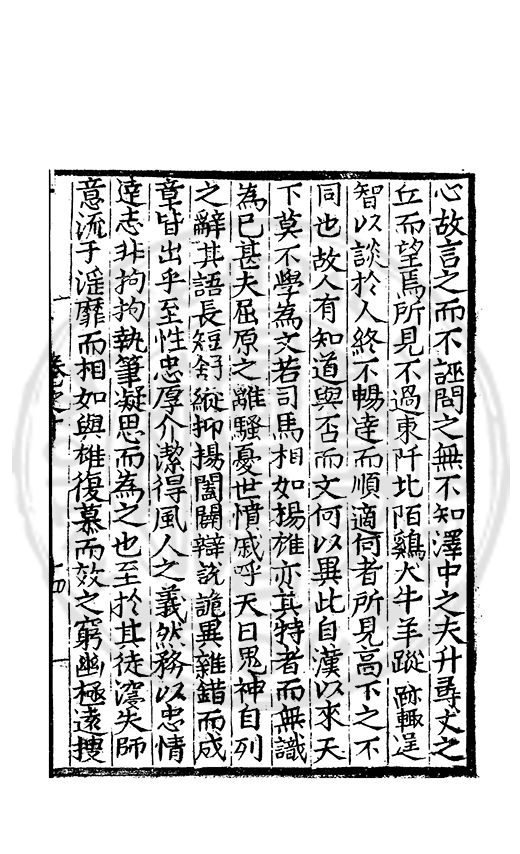 心故言之而不誣問之無不知澤中之夫升尋丈之
丘而望焉所見不過東阡北陌鷄犬牛羊蹤跡輙逞
智以談於人終不暢達而順適何者所見高下之不
同也故人有知道與否而文何以異此自漢以來天
下莫不學為文若司馬相如揚雄亦其特者而無識
為已甚夫屈原之離騷憂世憤戚呼天目鬼神自列
之辭其語長短舒縱抑揚闔闢辯說詭異雜錯而成
章皆出乎至性忠厚介潔得風人之義然務以忠情
達志非拘拘執筆凝思而為之也至於其徒寖失師
意流于淫靡而相如與雄復慕而效之窮幽極遠搜